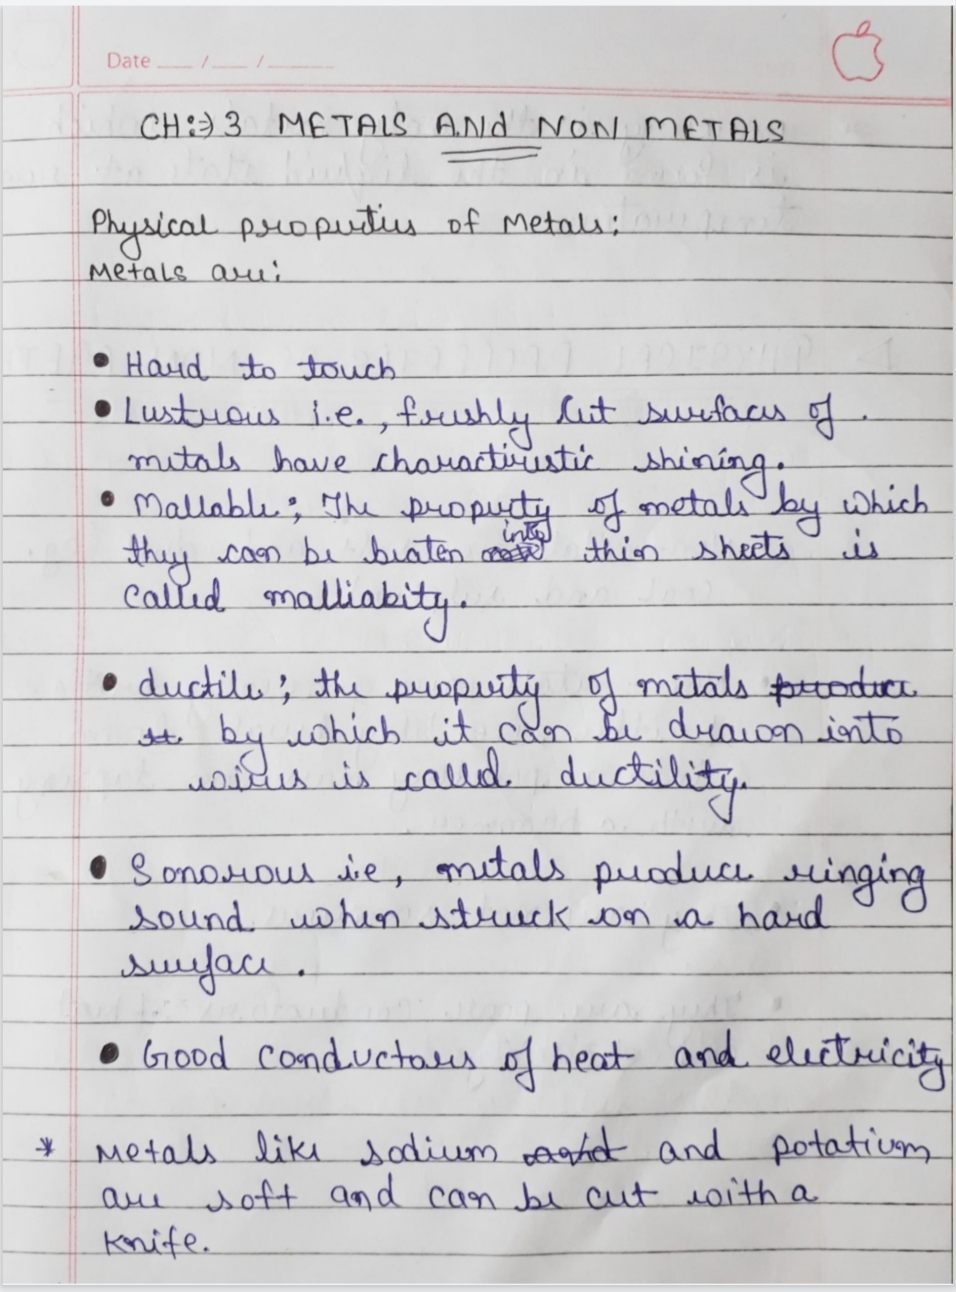 Date __ / __ / ____
CH:→ 3 METALS AND NON METALS
Physical properties of Metals:
Metals are:
• Hard to touch
• Lustrous i.e., freshly cut surfaces of .
metals have charactiristic shining.
• Mallable; The property of metals by which
they can be beaten into thin sheets is
called malliabity.
• ductile; the property of metals produce
it by which it can be drawn into
wires is called ductility.
• Sonorous i.e, metals produce ringing
sound when struck on a hard
surface.
• Good conductors of heat and electricity
* Metals like sodium and potatium
are soft and can be cut with a
knife.